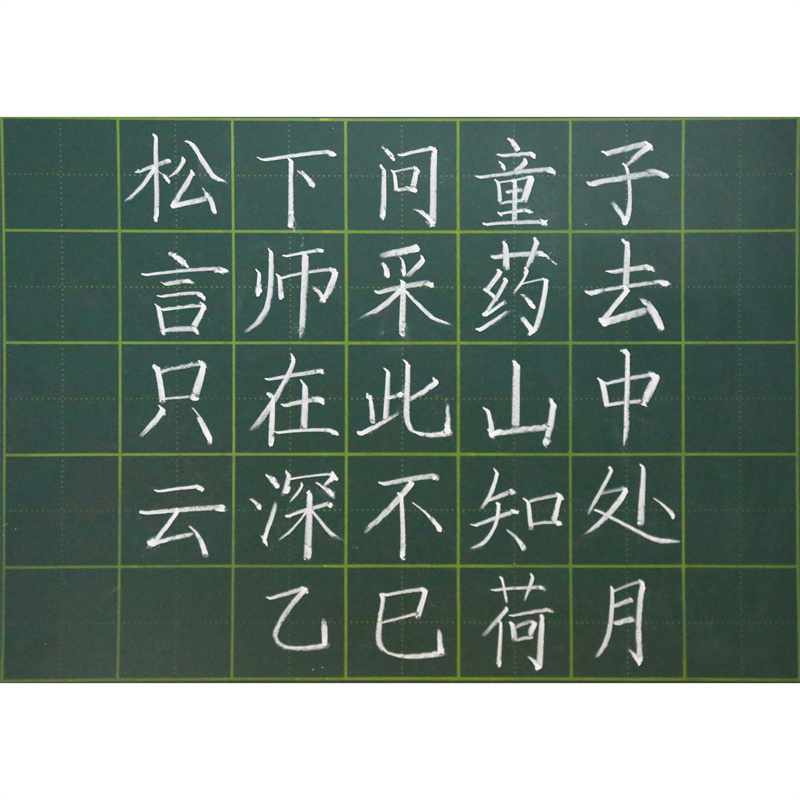 松下问童子
言师采药去
只在此山中
云深不知处
乙巳荷月